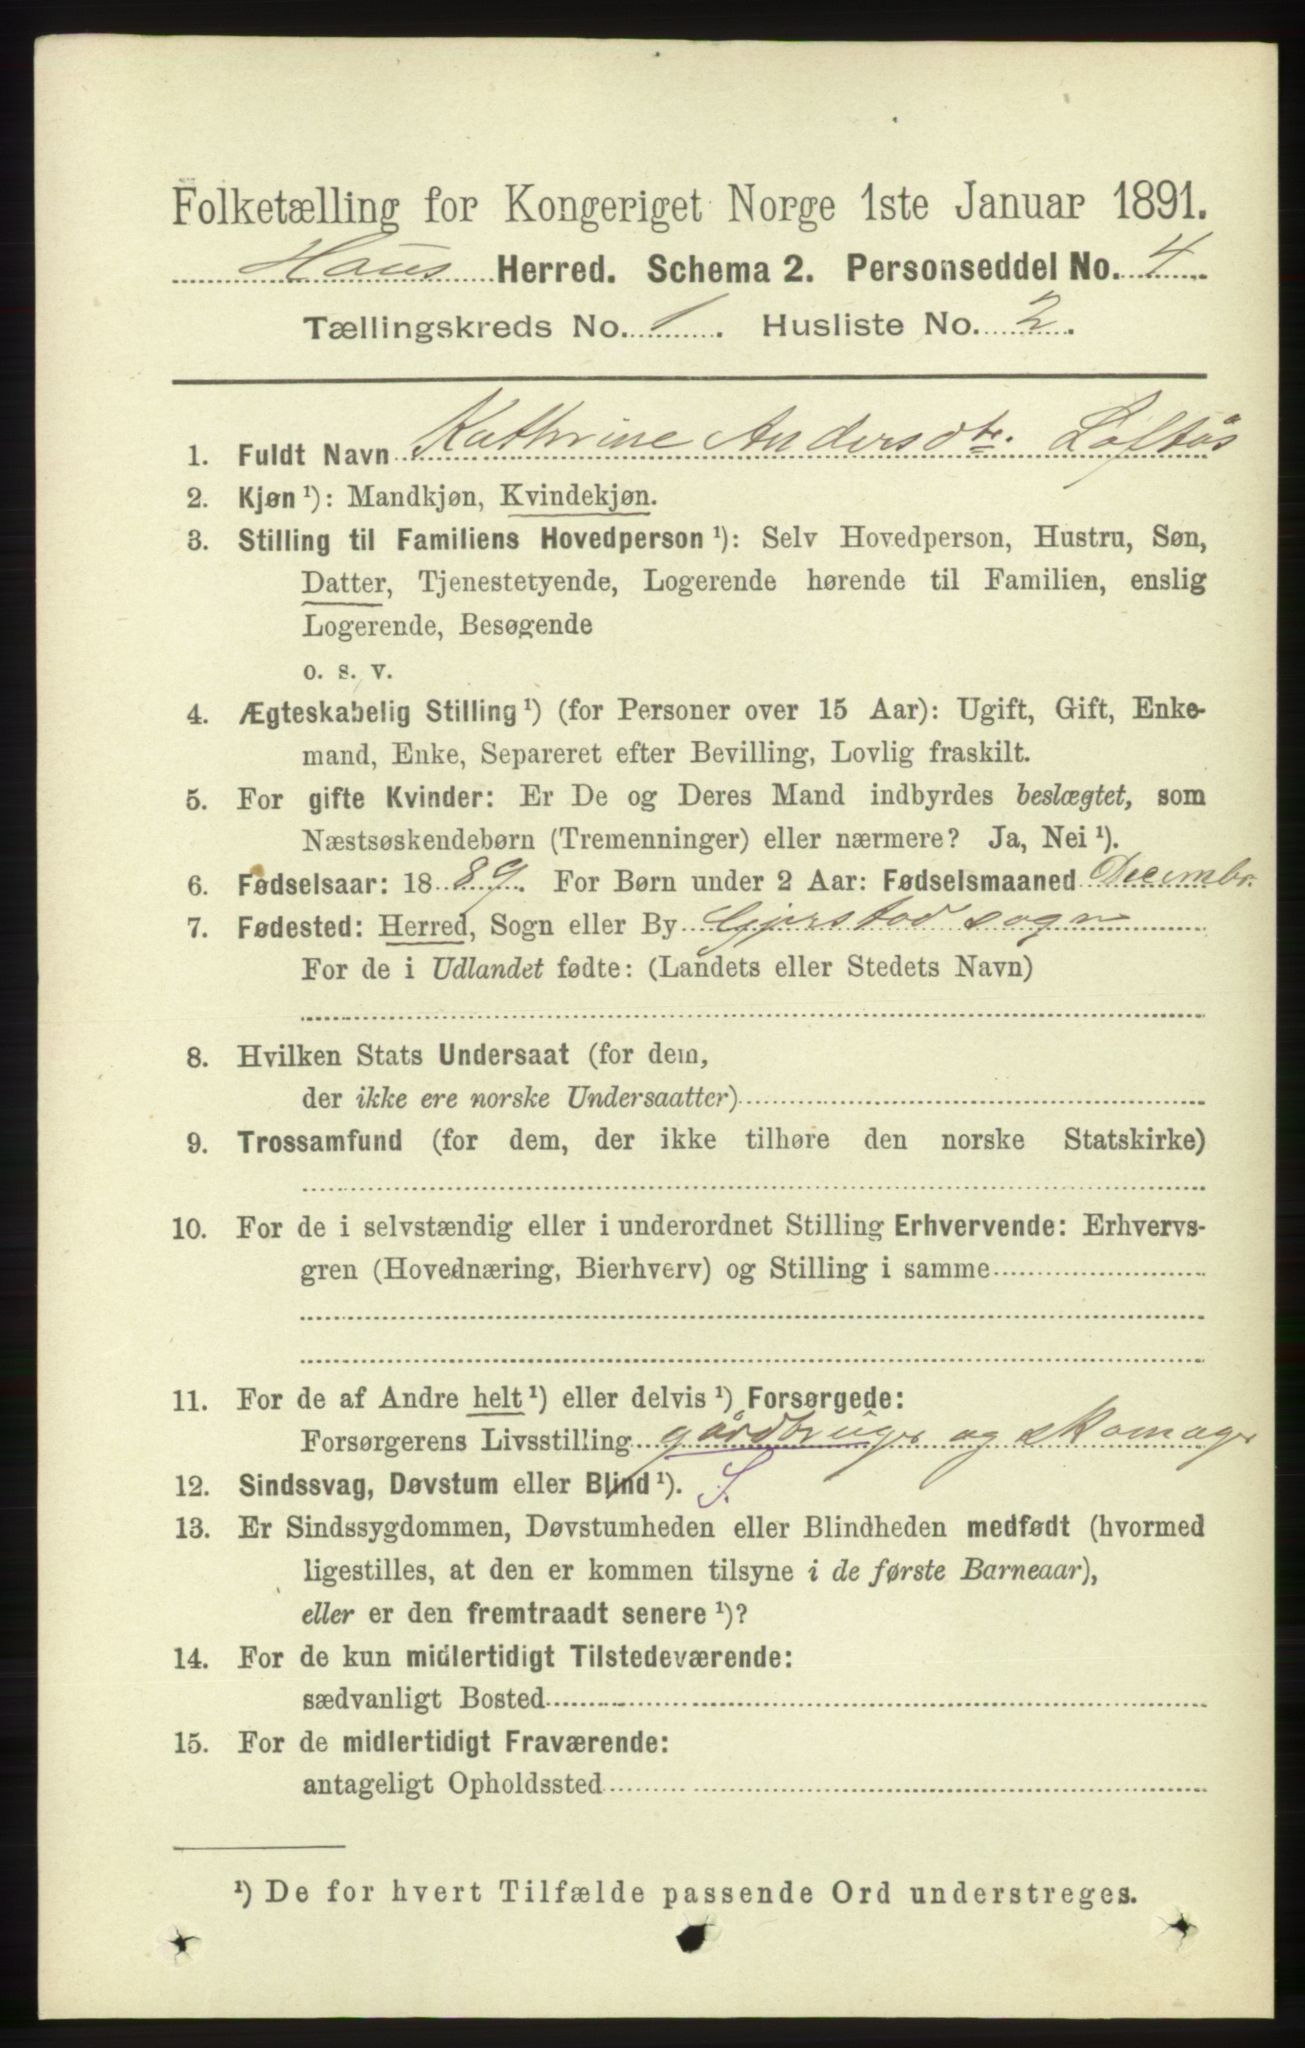 Folketælling for Kongeriget Norge 1ste Januar 1891.
Haus Herred. Schema 2. Personseddel No. 4
Tællingskreds No. 1. Husliste No. 2.
1. Fuldt Navn Kathrine Andersdtr. Loftås
2. Kjøn ¹): Mandkjøn, Kvindekjøn.
3. Stilling til Familiens Hovedperson ¹): Selv Hovedperson, Hustru, Søn,
Datter, Tjenestetyende, Logerende hørende til Familien, enslig
Logerende, Besøgende
o. s. v.
4. Ægteskabelig Stilling ¹) (for Personer over 15 Aar): Ugift, Gift, Enke-
mand, Enke, Separeret efter Bevilling, Lovlig fraskilt.
5. For gifte Kvinder: Er De og Deres Mand indbyrdes beslægtet, som
Næstsøskendebørn (Tremenninger) eller nærmere? Ja, Nei ¹).
6. Fødselsaar: 1889. For Børn under 2 Aar: Fødselsmaaned Decembr.
7. Fødested: Herred, Sogn eller By Gjerstad sogn
For de i Udlandet fødte: (Landets eller Stedets Navn)
8. Hvilken Stats Undersaat (for dem,
der ikke ere norske Undersaatter)
9. Trossamfund (for dem, der ikke tilhøre den norske Statskirke)
10. For de i selvstændig eller i underordnet Stilling Erhvervende: Erhvervs-
gren (Hovednæring, Bierhverv) og Stilling i samme
11. For de af Andre helt ¹) eller delvis ¹) Forsørgede:
Forsørgerens Livsstilling gårdbruger og skomager
12. Sindssvag, Døvstum eller Blind ¹). S.
13. Er Sindssygdommen, Døvstumheden eller Blindheden medfødt (hvormed
ligestilles, at den er kommen tilsyne i de første Barneaar),
eller er den fremtraadt senere ¹)?
14. For de kun midlertidigt Tilstedeværende:
sædvanligt Bosted
15. For de midlertidigt Fraværende:
antageligt Opholdssted
¹) De for hvert Tilfælde passende Ord understreges.